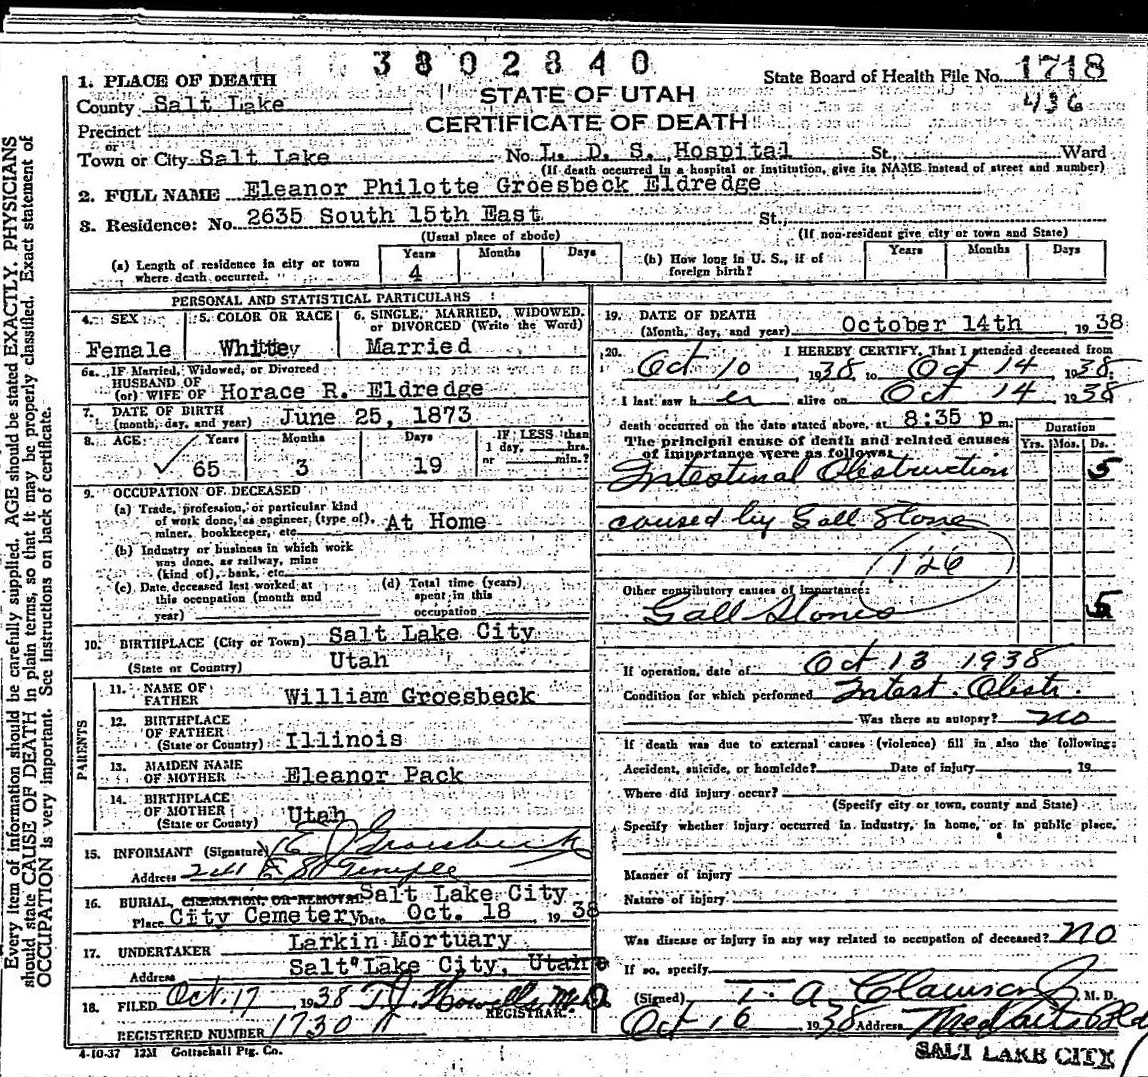 3802840
1. PLACE OF DEATH
State Board of Health File No. 1718
County Salt Lake
STATE OF UTAH
436
Precinct
CERTIFICATE OF DEATH
or
Town or City Salt Lake No. L. D. S. Hospital St., Ward
(If death occurred in a hospital or institution, give its NAME instead of street and number)
2. FULL NAME Eleanor Philotte Groesbeck Eldredge
3. Residence: No. 2635 South 15th East St.,
(Usual place of abode) (If non-resident give city or town and State)
(a) Length of residence in city or town where death occurred. Years 4 Months Days
(b) How long in U. S., if of foreign birth? Years Months Days
PERSONAL AND STATISTICAL PARTICULARS
4. SEX Female
5. COLOR OR RACE
6. SINGLE, MARRIED, WIDOWED, or DIVORCED (Write the Word) Married
6a. IF Married, Widowed, or Divorced
HUSBAND OF
(or) WIFE OF Horace R. Eldredge
7. DATE OF BIRTH
(month, day, and year) June 25, 1873
8. AGE Years 65 Months 3 Days 19 IF LESS than 1 day, hrs. or min.?
9. OCCUPATION OF DECEASED
(a) Trade, profession, or particular kind
of work done, as engineer, (type of), At Home
miner, bookkeeper, etc.
(b) Industry or business in which work
was done, as railway, mine
(kind of), bank, etc.
(c) Date deceased last worked at
this occupation (month and
year)
(d) Total time (years)
spent in this
occupation
10. BIRTHPLACE (City or Town) Salt Lake City
(State or Country) Utah
PARENTS
11. NAME OF
FATHER William Groesbeck
12. BIRTHPLACE
OF FATHER
(State or Country) Illinois
13. MAIDEN NAME
OF MOTHER Eleanor Pack
14. BIRTHPLACE
OF MOTHER Utah
(State or County)
15. INFORMANT (Signature) E J Groesbeck
Address E So Temple
16. BURIAL, CREMATION, OR REMOVAL Salt Lake City
Place City Cemetery Date Oct. 18, 1938
17. UNDERTAKER Larkin Mortuary
Address Salt Lake City, Utah
18. FILED Oct. 17 1938 T. J. Howells M D
REGISTRAR.
REGISTERED NUMBER 1730 A
4-10-37 12M Gottschall Ptg. Co.
19. DATE OF DEATH
(Month, day, and year) October 14th 1938
20. I HEREBY CERTIFY, That I attended deceased from
Oct 10 1938, to Oct 14 1938.
I last saw h er alive on Oct 14 1938
death occurred on the date stated above, at 8:35 p m.
The principal cause of death and related causes
of importance were as follows:
Duration
Yrs. Mos. Ds.
Intestinal Obstruction 5
caused by Gall Stone
126
Other contributory causes of importance:
Gall Stones 5
If operation, date of Oct 13 1938
Condition for which performed Intest. Obstr.
Was there an autopsy? no
If death was due to external causes (violence) fill in also the following:
Accident, suicide, or homicide? Date of injury 19
Where did injury occur?
(Specify city or town, county and State)
Specify whether injury occurred in industry, in home, or in public place.
Manner of injury
Nature of injury
Was disease or injury in any way related to occupation of deceased? no
If so, specify
(Signed) T. A. Clawson Jr M. D.
Oct 16 1938 Address
SALT LAKE CITY
Every item of information should be carefully supplied. AGE should be stated EXACTLY. PHYSICIANS
should state CAUSE OF DEATH in plain terms, so that it may be properly classified. Exact statement of
OCCUPATION is very important. See instructions on back of certificate.